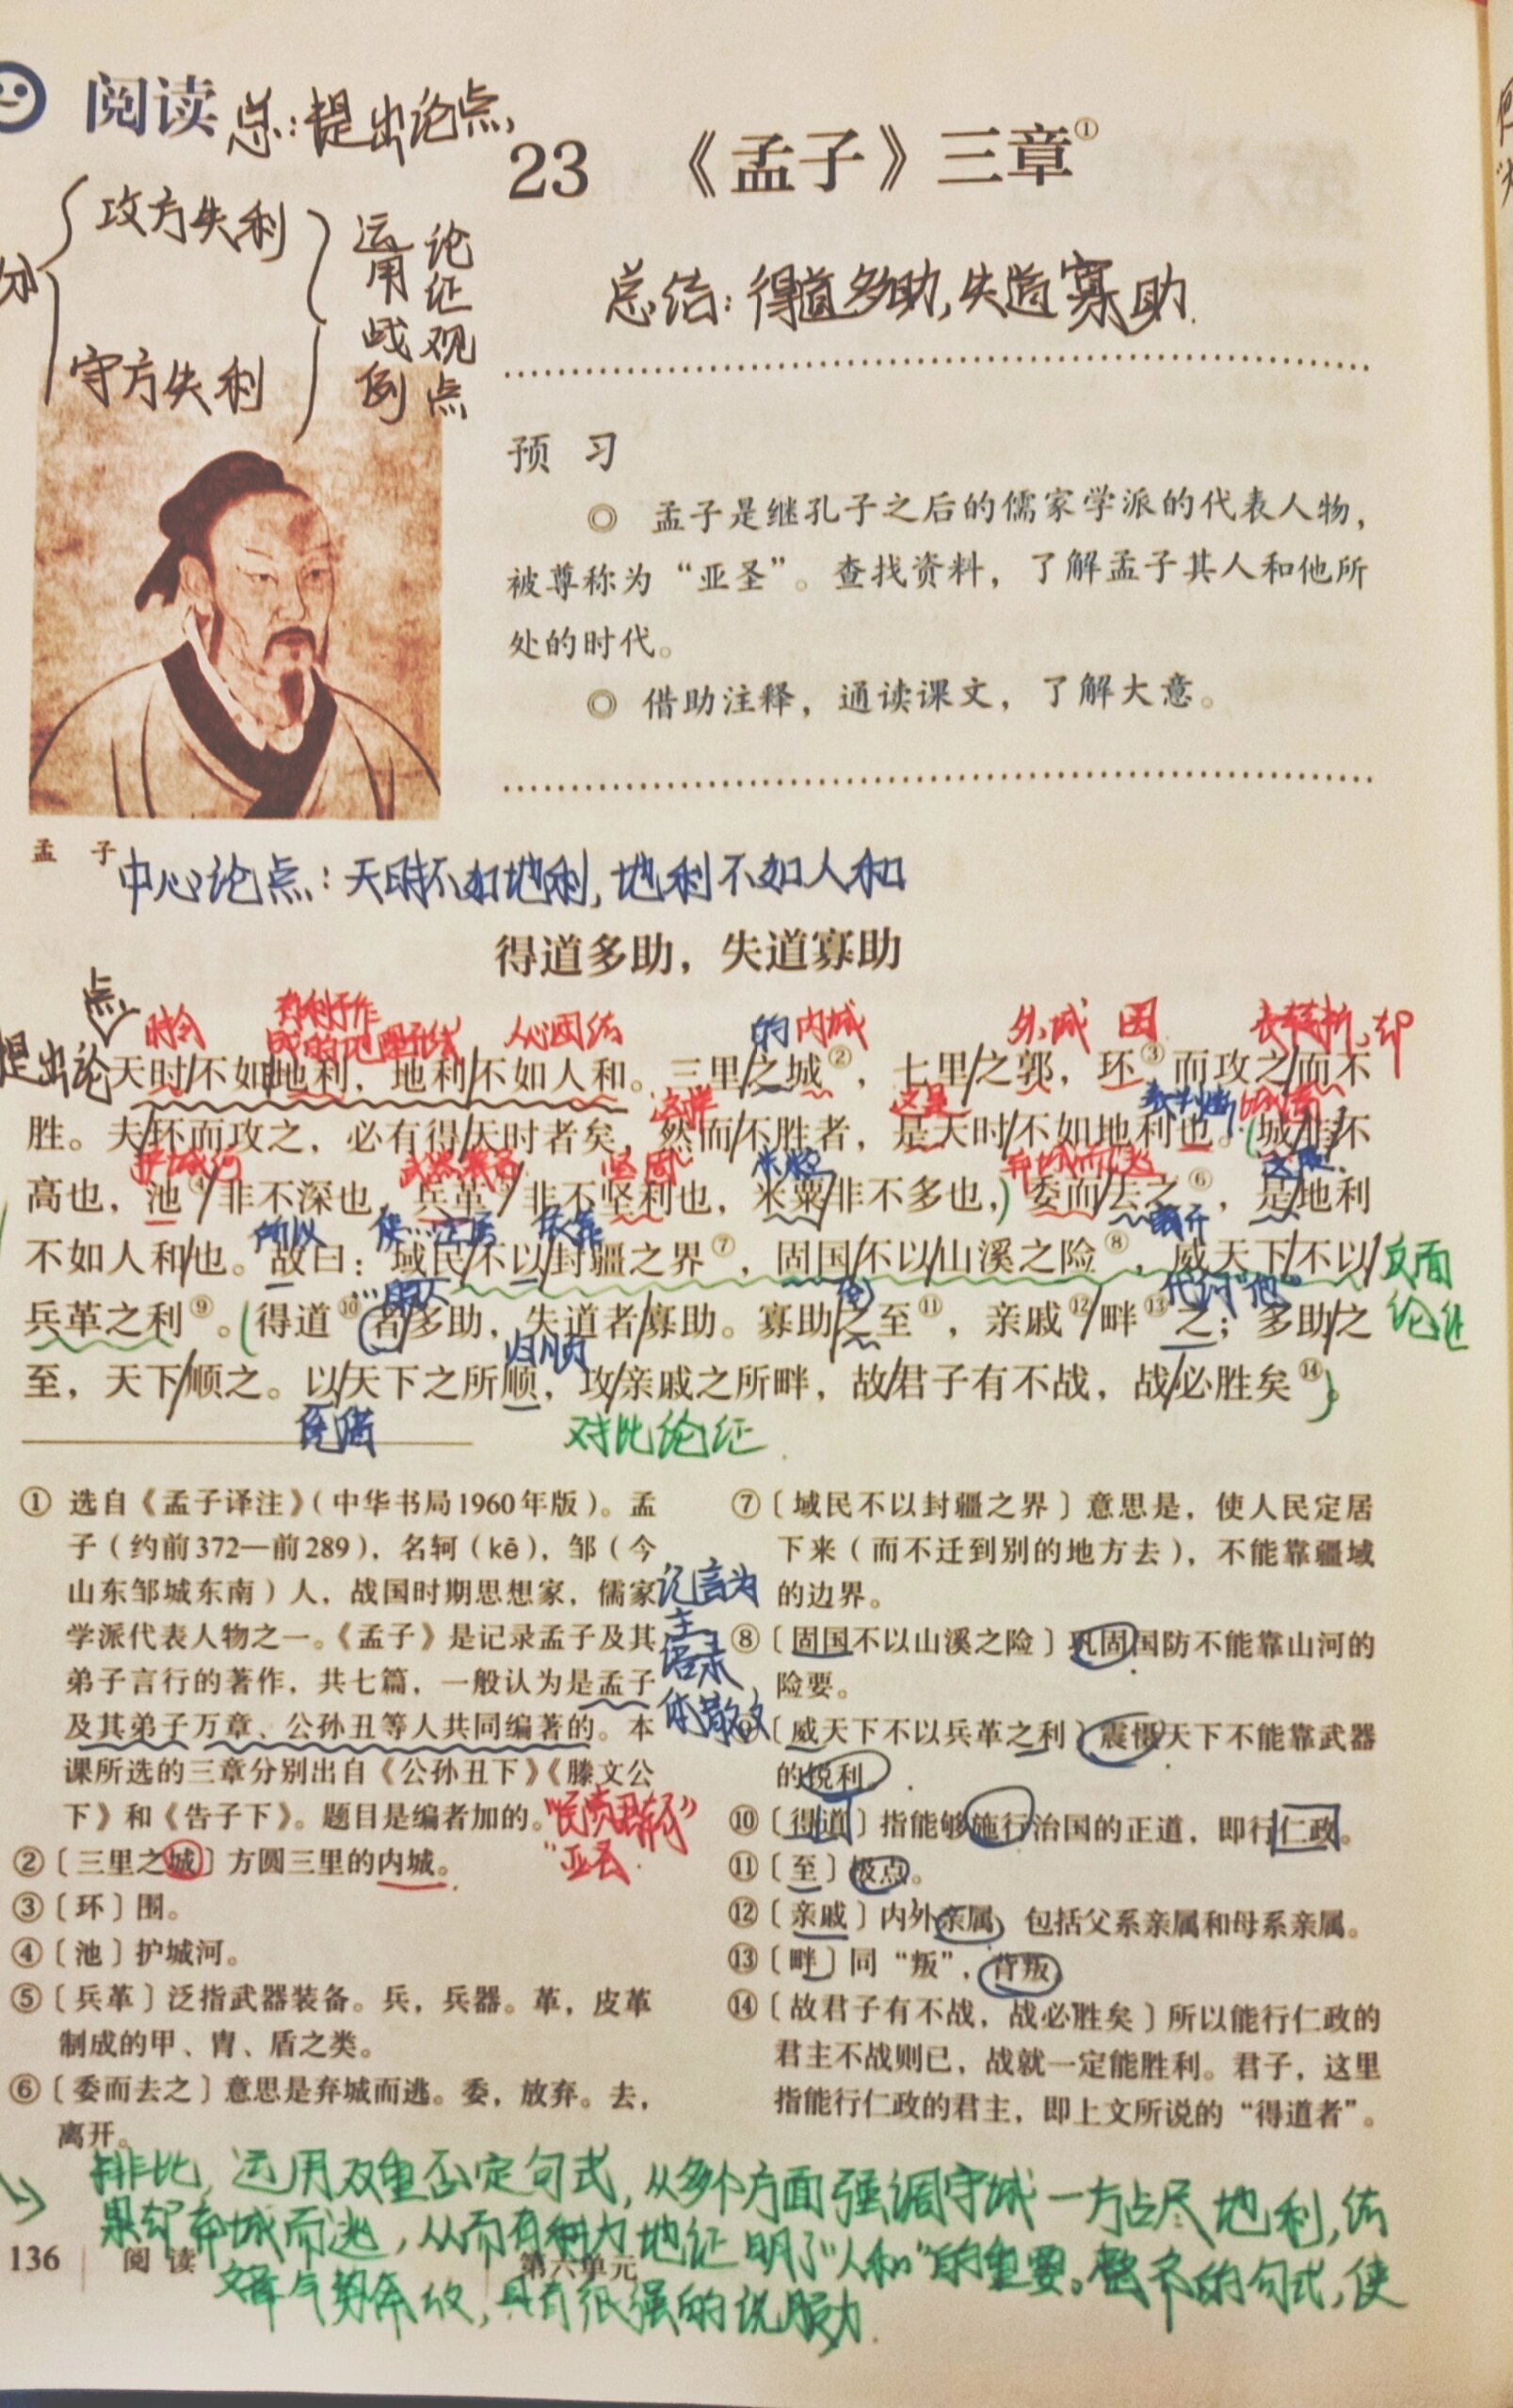 阅读
总:提出论点
23 《孟子》三章①
分
攻方失利
守方失利
运用战例
论证观点
总结:得道多助,失道寡助.
预 习
◎ 孟子是继孔子之后的儒家学派的代表人物,
被尊称为“亚圣”。查找资料,了解孟子其人和他所
处的时代。
◎ 借助注释,通读课文,了解大意。
孟 子
中心论点:天时不如地利,地利不如人和
得道多助,失道寡助
提出论点
时令 有利于作 人心团结 的 内城 外城 围 表转折,却
战的地理形势
天时不如地利,地利不如人和。三里之城②,七里之郭,环③而攻之而不
这样 这是 表判断
胜。夫环而攻之,必有得天时者矣,然而不胜者,是天时不如地利也。城非不
护城河 武器装备 坚固 弃城而逃
高也,池④非不深也,兵革⑤非不坚利也,米粟非不多也,委而去之⑥,是地利
所以 依靠 离开
不如人和也。故曰:域民不以封疆之界⑦,固国不以山溪之险⑧,威天下不以
反面论证
代词“他”
兵革之利⑨。得道⑩者多助,失道者寡助。寡助之至⑪,亲戚⑫畔⑬之;多助之
归顺
至,天下顺之。以天下之所顺,攻亲戚之所畔,故君子有不战,战必胜矣⑭。
凭借
对比论证
① 选自《孟子译注》(中华书局1960年版)。孟
子(约前372—前289),名轲(kē),邹(今
山东邹城东南)人,战国时期思想家,儒家
学派代表人物之一。《孟子》是记录孟子及其
弟子言行的著作,共七篇,一般认为是孟子
及其弟子万章、公孙丑等人共同编著的。本
课所选的三章分别出自《公孙丑下》《滕文公
下》和《告子下》。题目是编者加的。
记言为主
语录体散文
“民贵君轻”
“亚圣”
②〔三里之城〕方圆三里的内城。
③〔环〕围。
④〔池〕护城河。
⑤〔兵革〕泛指武器装备。兵,兵器。革,皮革
制成的甲、胄、盾之类。
⑥〔委而去之〕意思是弃城而逃。委,放弃。去,
离开。
⑦〔域民不以封疆之界〕意思是,使人民定居
下来(而不迁到别的地方去),不能靠疆域
的边界。
⑧〔固国不以山溪之险〕巩固国防不能靠山河的
险要。
⑨〔威天下不以兵革之利〕震慑天下不能靠武器
的锐利。
⑩〔得道〕指能够施行治国的正道,即行仁政。
⑪〔至〕极点。
⑫〔亲戚〕内外亲属,包括父系亲属和母系亲属。
⑬〔畔〕同“叛”,背叛。
⑭〔故君子有不战,战必胜矣〕所以能行仁政的
君主不战则已,战就一定能胜利。君子,这里
指能行仁政的君主,即上文所说的“得道者”。
排比,运用双重否定句式,从多个方面强调守城一方占尽地利,结
果却弃城而逃,从而有力地证明了“人和”的重要。整齐的句式,使
文章气势奔放,具有很强的说服力.
136 阅 读 第六单元